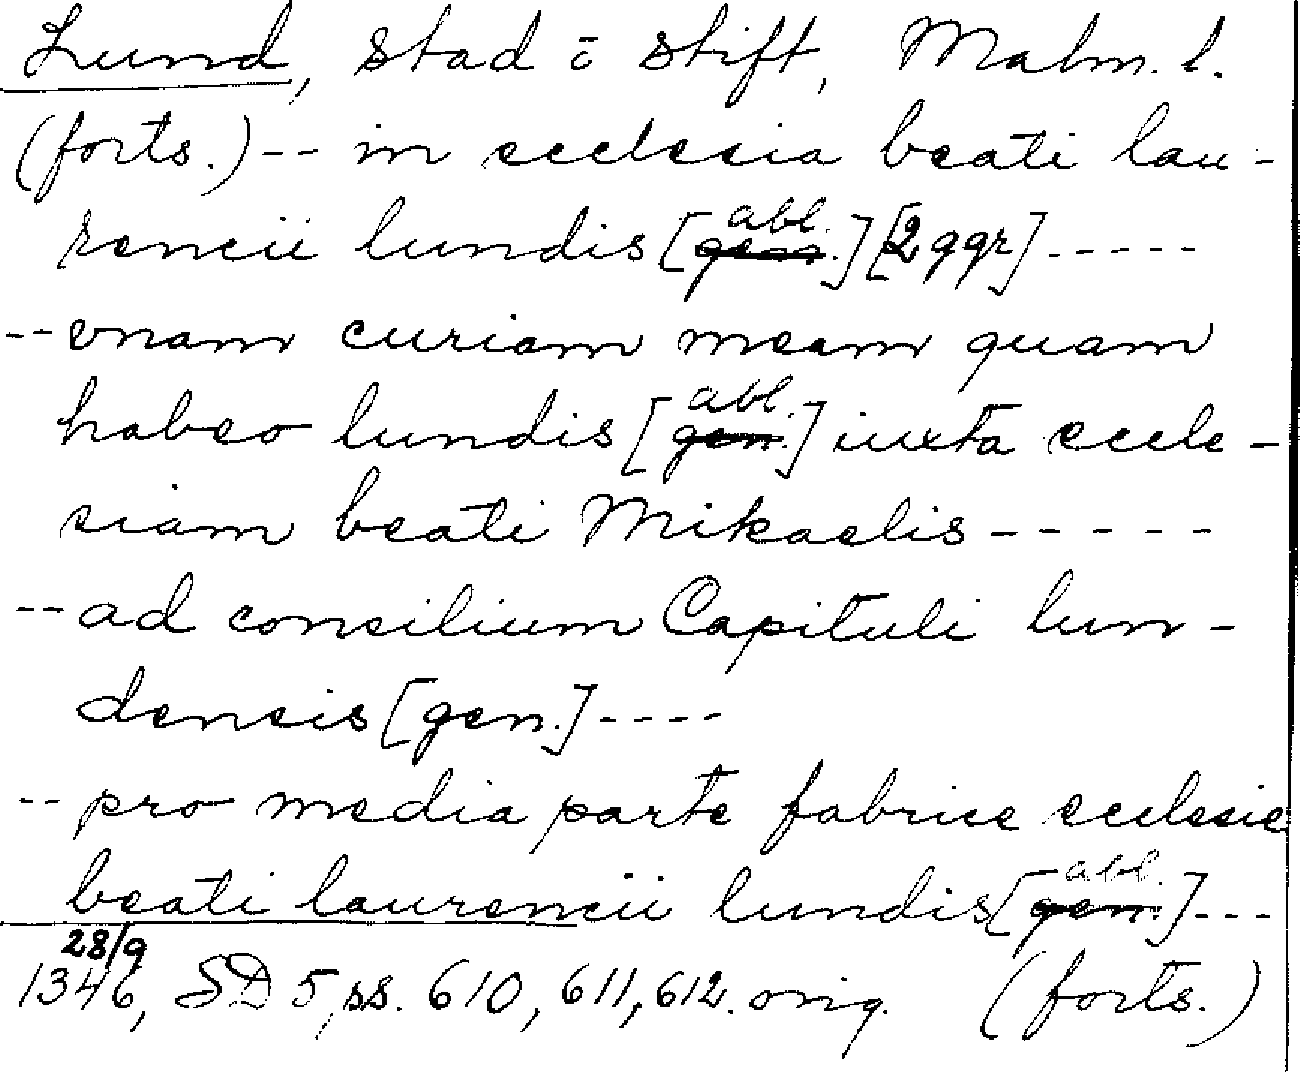 Lund, stad o stift, Malm. l.
(forts.) -- in ecclesia beati lau-
rencii lundis [gen. abl.] [2 ggr] -----
-- vnam curiam meam quam
habeo lundis [gen. abl.] iuxta eccle-
siam beati Mikaelis -----
-- ad consilium Capituli lun-
densis [gen.] ----
-- pro media parte fabrice ecclesie
beati laurencii lundis [gen. abl.] ---
28/9
1346, SD 5, ss. 610, 611, 612. orig. (forts.)